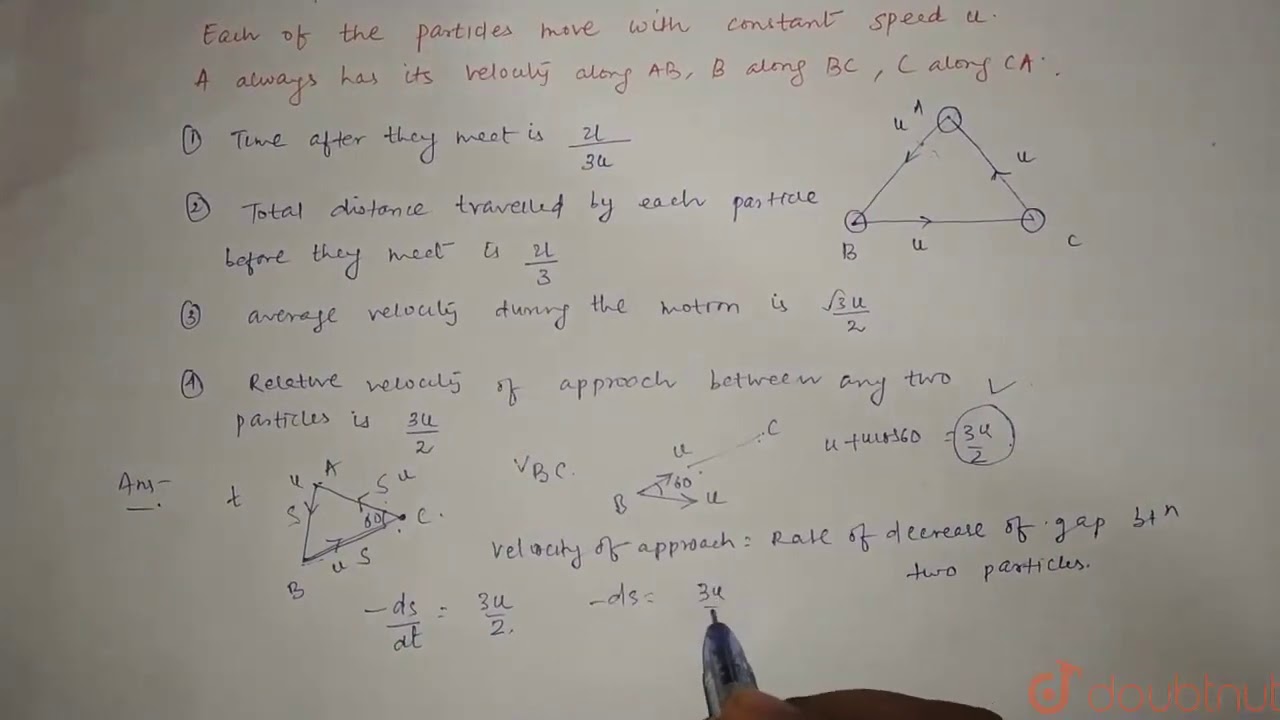 Each of the particles move with constant speed u.
A always has its velocity along AB, B along BC, C along CA.
① Time after they meet is 2l/3u
② Total distance travelled by each particle
before they meet is 2l/3
③ average velocity during the motion is √3u/2
④ Relative velocity of approach between any two
particles is 3u/2
A
u
u
B
u
C
u+ucos60 = 3u/2
Ans-
t
u A
S
S u
60
C.
u S
B
VBC.
u
C
B
60
u
velocity of approach = Rate of decrease of gap btn
two particles.
-ds/dt = 3u/2.
-ds = 3u
doubtnut